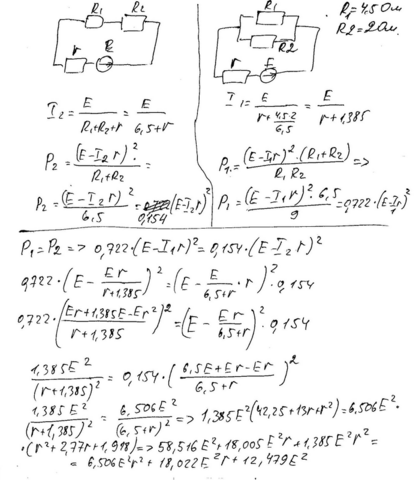 R₁ R₂
r E
R₁
R2
r E
R₁=4,5 Ом
R2=2 Ом.
I₂ = E/(R₁+R₂+r) = E/(6,5+r)
I₁ = E/(r+(4,5·2)/6,5) = E/(r+1,385)
P₂ = (E-I₂r)²/(R₁+R₂) =
P₁ = (E-I₁r)²·(R₁+R₂)/(R₁R₂) =>
P₂ = (E-I₂r)²/6,5 = 0,154(E-I₂r)²
P₁ = (E-I₁r)²·6,5/9 = 0,722·(E-I₁r)²
P₁=P₂ => 0,722·(E-I₁r)² = 0,154·(E-I₂r)²
0,722·(E - Er/(r+1,385))² = (E - E/(6,5+r)·r)²·0,154
0,722·((Er+1,385E-Er²)/(r+1,385))² = (E - Er/(6,5+r))²·0,154
1,385E²/(r+1,385)² = 0,154·((6,5E+Er-Er)/(6,5+r))²
1,385E²/(r+1,385)² = 6,506E²/(6,5+r)² => 1,385E²(42,25+13r+r²) = 6,506E²·
·(r²+2,77r+1,918) => 58,516E²+18,005E²r+1,385E²r² =
= 6,506E²r²+18,022E²r+12,479E²